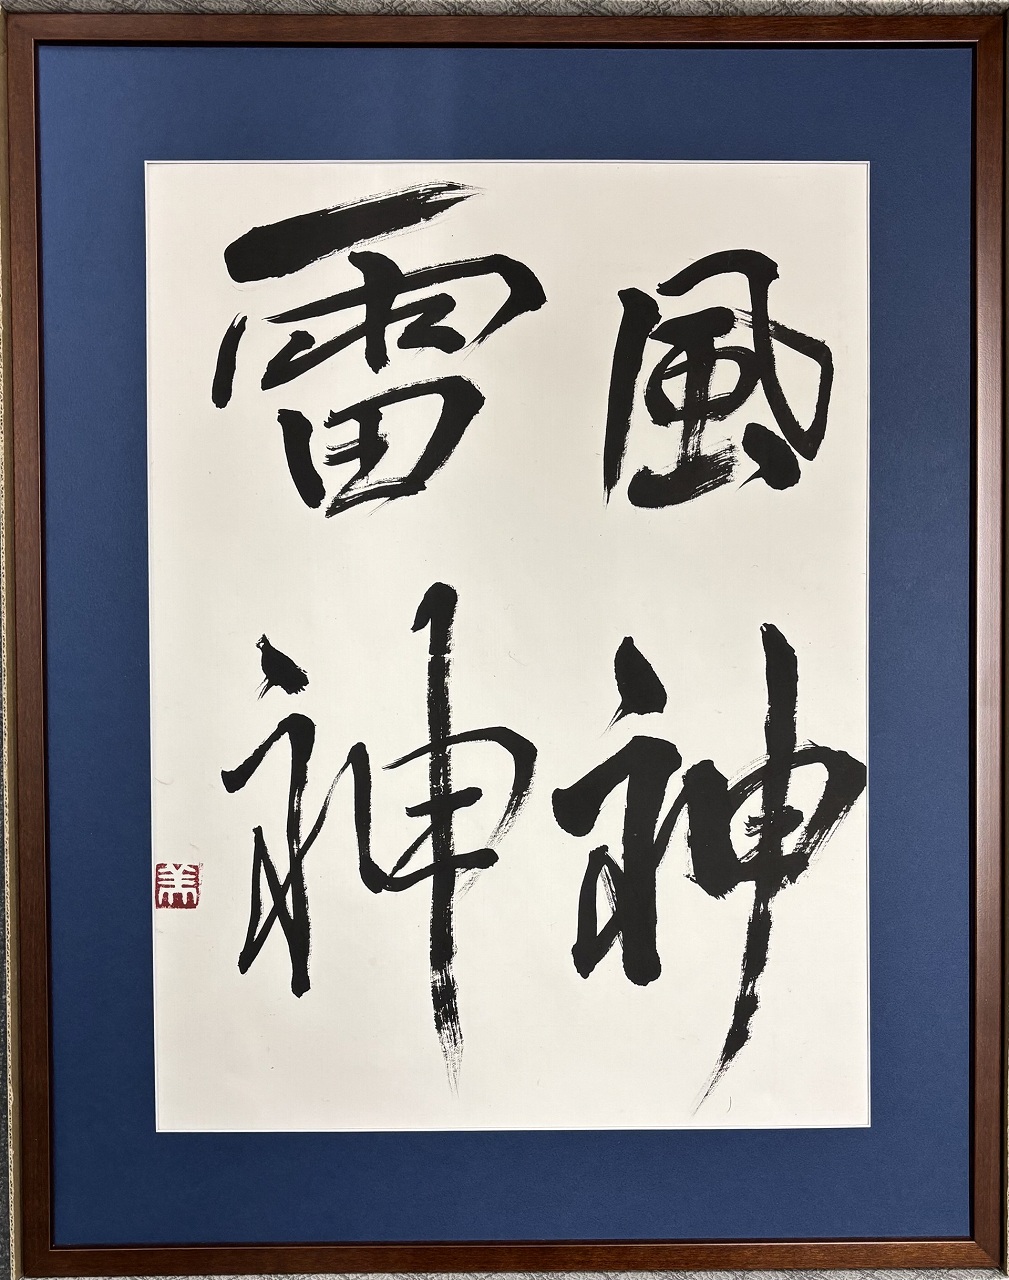 風神
雷神
美